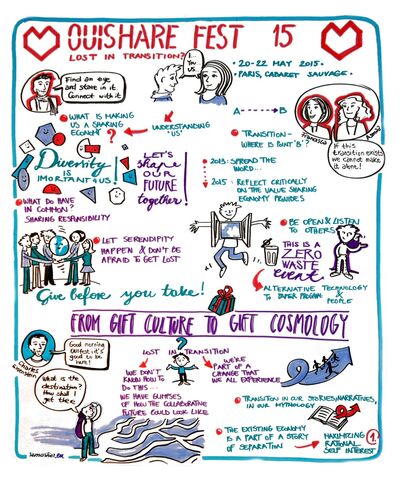 OUISHARE FEST 15
LOST IN TRANSITION?
20-22 MAY 2015
PARIS, CABARET SAUVAGE.
Find an eye
and stare in it.
Connect with it
I
YOU
US
WHAT IS MAKING
US A SHARING
ECONOMY?
UNDERSTANDING
"US"
A B
TRANSITION-
WHERE IS POINT 'B'?
Francesca
If this
transition exists
we cannot make
it alone!
Diversity
IS
IMPORTANT 4 US!
LET'S
shape
OUR
FUTURE
together!
2013: SPREAD THE
WORD...
2015: REFLECT CRITICALLY
ON THE VALUE SHARING
ECONOMY PROVIDES
WHAT DO HAVE
IN COMMON?
SHARING RESPONSIBILITY
BE OPEN & LISTEN
TO OTHERS
LET SERENDIPITY
HAPPEN & DON'T BE
AFRAID TO GET LOST
THIS IS A
ZERO
WASTE
event
ALTERNATIVE TECHNOLOGY
& PEOPLE
Give before you take!
FROM GIFT CULTURE TO GIFT COSMOLOGY
Good morning
OuiFest it's
good to be
here!
Charles
Eisenstein
LOST IN TRANSITION
?
WE DON'T
KNOW HOW TO
DO THIS...
WE HAVE GLIMPSES
OF HOW THE COLLABORATIVE
FUTURE COULD LOOK LIKE
WE'RE
PART OF A
CHANGE THAT
WE ALL EXPERIENCE
What is the
destination?
How shall I
get there
TRANSITION IN OUR STORIES, NARRATIVES,
IN OUR MYTHOLOGY
THE EXISTING ECONOMY
IS A PART OF A STORY
OF SEPARATION
MAXIMIZING
RATIONAL
SELF INTEREST
1